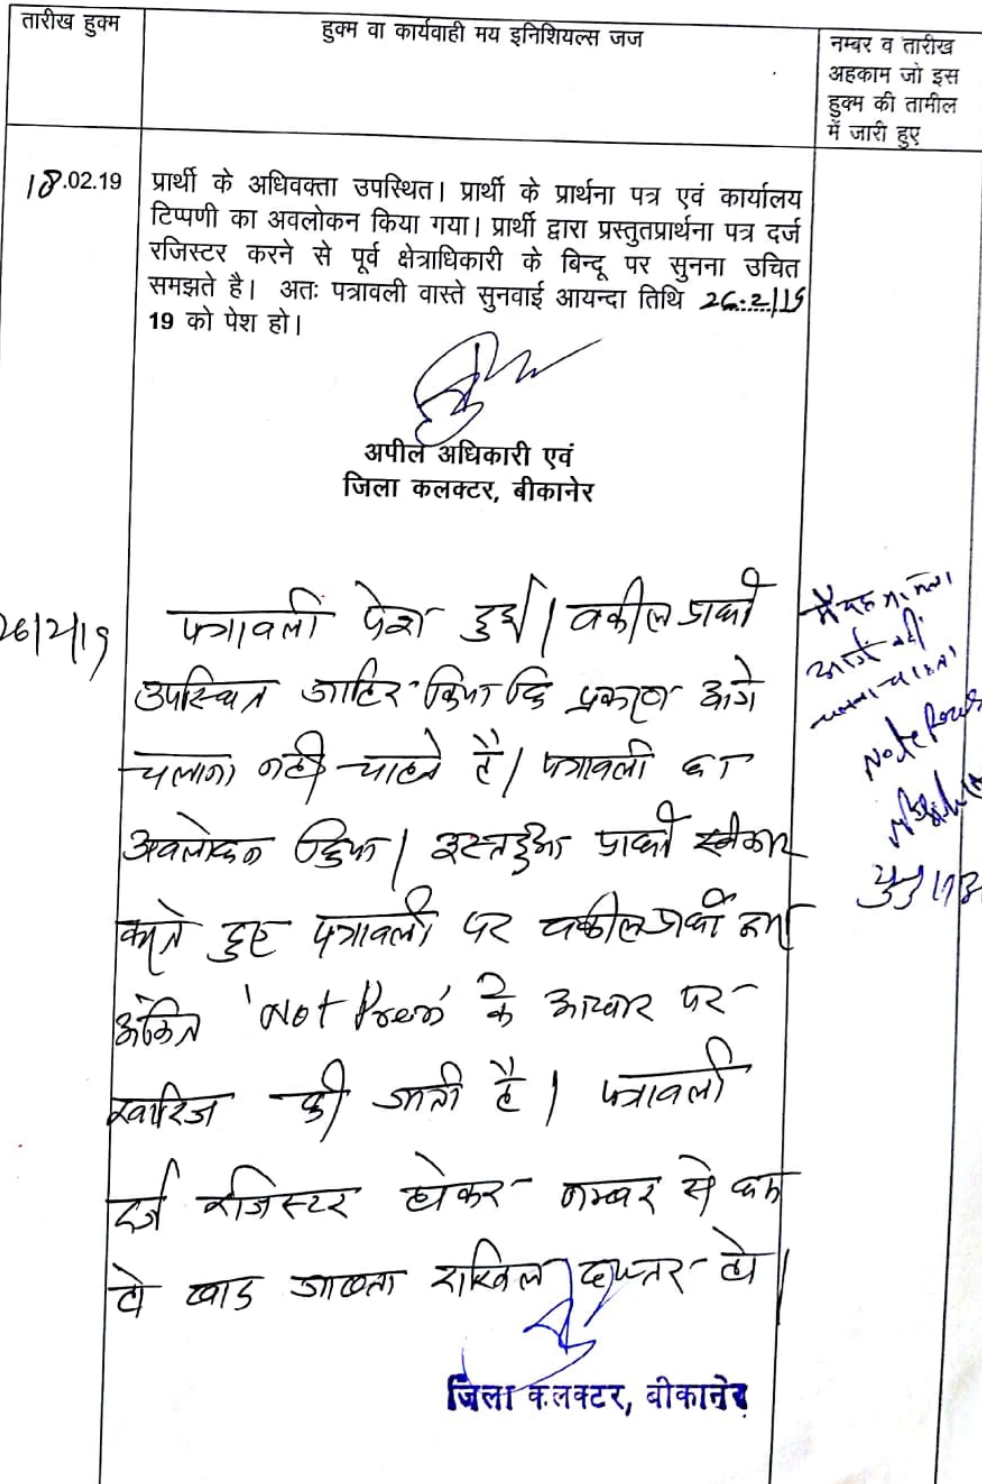 तारीख हुक्म
हुक्म वा कार्यवाही मय इनिशियल्स जज
नम्बर व तारीख
अहकाम जो इस
हुक्म की तामील
में जारी हुए
18.02.19
प्रार्थी के अधिवक्ता उपस्थित। प्रार्थी के प्रार्थना पत्र एवं कार्यालय
टिप्पणी का अवलोकन किया गया। प्रार्थी द्वारा प्रस्तुतप्रार्थना पत्र दर्ज
रजिस्टर करने से पूर्व क्षेत्राधिकारी के बिन्दू पर सुनना उचित
समझते है। अतः पत्रावली वास्ते सुनवाई आयन्दा तिथि 26.2/19
19 को पेश हो।
अपील अधिकारी एवं
जिला कलक्टर, बीकानेर
26/2/19
पत्रावली पेश हुई। वकील प्रार्थी
उपस्थित जाहिर किया कि प्रकरण आगे
चलाना नही चाहते है। पत्रावली का
अवलोकन किया। इस्तदुआ प्रार्थी स्वीकार
करते हुए पत्रावली पर वकील प्रार्थी द्वारा
अंकित 'Not Press' के आधार पर
खारिज की जाती है। पत्रावली
दर्ज रजिस्टर होकर नम्बर से कम
हो बाद जाब्ता दाखिल दफ्तर हो।
मैं यह मामला
आगे नहीं
चलाना चाहता
Note Press
जिला कलक्टर, बीकानेर